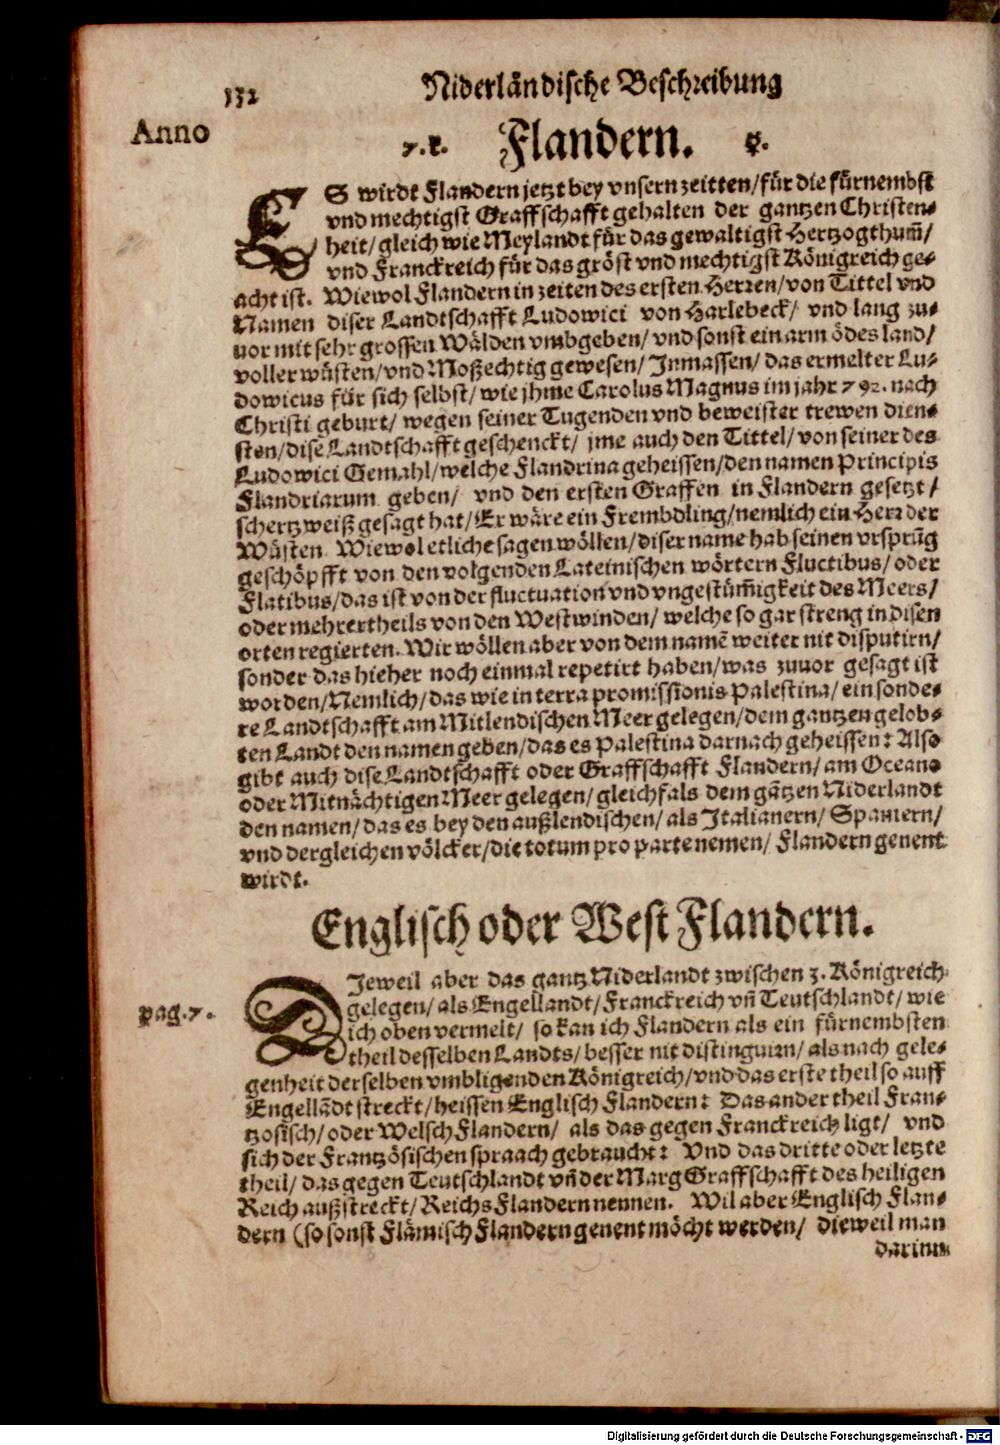 132 Niderländische Beschreibung
Anno
7.k. Flandern. q.
ES wirdt Flandern jetzt bey vnsern zeitten/für die fürnembst
vnd mechtigst Graffschafft gehalten der gantzen Christen-
heit/gleich wie Meylandt für das gewaltigst Hertzogthum̃/
vnd Franckreich für das gröst vnd mechtigst Königreich ge-
acht ist. Wiewol Flandern in zeiten des ersten Herren/von Tittel vnd
Namen diser Landtschafft Ludowici von Harlebeck/ vnd lang zu-
uor mit sehr grossen Wälden vmbgeben/ vnd sonst ein arm ödes land/
voller wüsten/vnd Moßechtig gewesen/ Inmassen/ das ermelter Lu-
dowicus für sich selbst/ wie jhme Carolus Magnus im jahr 792. nach
Christi geburt/ wegen seiner Tugenden vnd beweister trewen dien-
sten/dise Landtschafft geschenckt/ jme auch den Tittel/ von seiner des
Ludowici Gemahl/welche Flandrina geheissen/den namen Principis
Flandriarum geben/ vnd den ersten Graffen in Flandern gesetzt/
schertzweiß gesagt hat/ Er wäre ein Frembdling/nemlich ein Herr der
Wüsten. Wiewol etliche sagen wöllen/diser name hab seinen vrsprũg
geschöpfft von den volgenden Lateinischen wörtern Fluctibus/ oder
Flatibus/das ist von der fluctuation vnd vngestüm̃igkeit des Meers/
oder mehrertheils von den Westwinden/ welche so gar streng in disen
orten regierten. Wir wöllen aber von dem namẽ weiter nit disputirn/
sonder das hieher noch einmal repetirt haben/was zuuor gesagt ist
worden/Nemlich/das wie in terra promissionis Palestina/ ein sonde-
re Landtschafft am Mitlendischen Meer gelegen/dem gantzen gelob-
ten Landt den namen geben/das es Palestina darnach geheissen: Also
gibt auch dise Landtschafft oder Graffschafft Flandern/ am Oceano
oder Mitnächtigen Meer gelegen/ gleichfals dem gãtzen Niderlandt
den namen/das es bey den außlendischen/ als Italianern/ Spaniern/
vnd dergleichen völcker/die totum pro parte nemen/ Flandern genent
wirdt.
Englisch oder West Flandern.
DJeweil aber das gantz Niderlandt zwischen 3. Königreich
gelegen/ als Engellandt/Franckreich vñ Teutschlandt/ wie
pag. 7. ich oben vermelt/ so kan ich Flandern als ein fürnembsten
theil desselben Landts/ besser nit distinguirn/ als nach gele-
genheit derselben vmbligenden Königreich/vnd das erste theil so auff
Engellãdt streckt/heissen Englisch Flandern: Das ander theil Fran-
tzosisch/oder Welsch Flandern/ als das gegen Franckreich ligt/ vnd
sich der Frantzösischen spraach gebraucht: Vnd das dritte oder letzte
theil/ das gegen Teutschlandt vñ der Marg Graffschafft des heiligen
Reich außstreckt/ Reichs Flandern nennen. Wil aber Englisch Flan-
dern (so sonst Flämisch Flandern genent möcht werden/ dieweil man
darinn
Digitalisierung gefördert durch die Deutsche Forschungsgemeinschaft - DFG